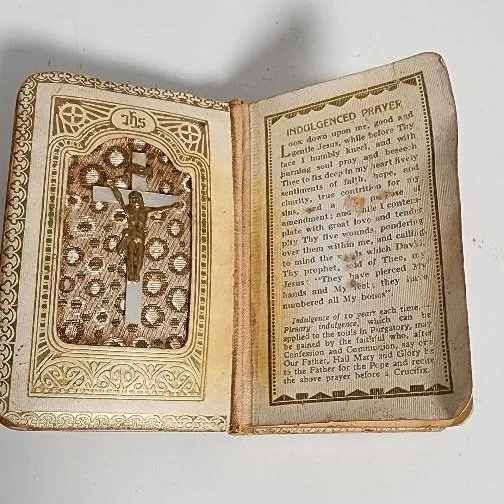 Jhs
INDULGENCED PRAYER
Look down upon me, good and
gentle Jesus, while before Thy
face I humbly kneel, and with
burning soul pray and beseech
Thee to fix deep in my heart lively
sentiments of faith, hope, and
charity, true contrition for my
sins, and a purpose
amendment; and while I contem-
plate with great love and tender
pity Thy five wounds, pondering
over them within me, and calling
to mind the which David,
Thy prophet, said of Thee, my
Jesus: "They have pierced My
hands and My feet; they have
numbered all My bones"
Indulgence of 10 years each time.
Plenary indulgence, which can be
applied to the souls in Purgatory, may
be gained by the faithful who, after
Confession and Communion, say one
Our Father, Hail Mary and Glory be
to the Father for the Pope and recite
the above prayer before a Crucifix.